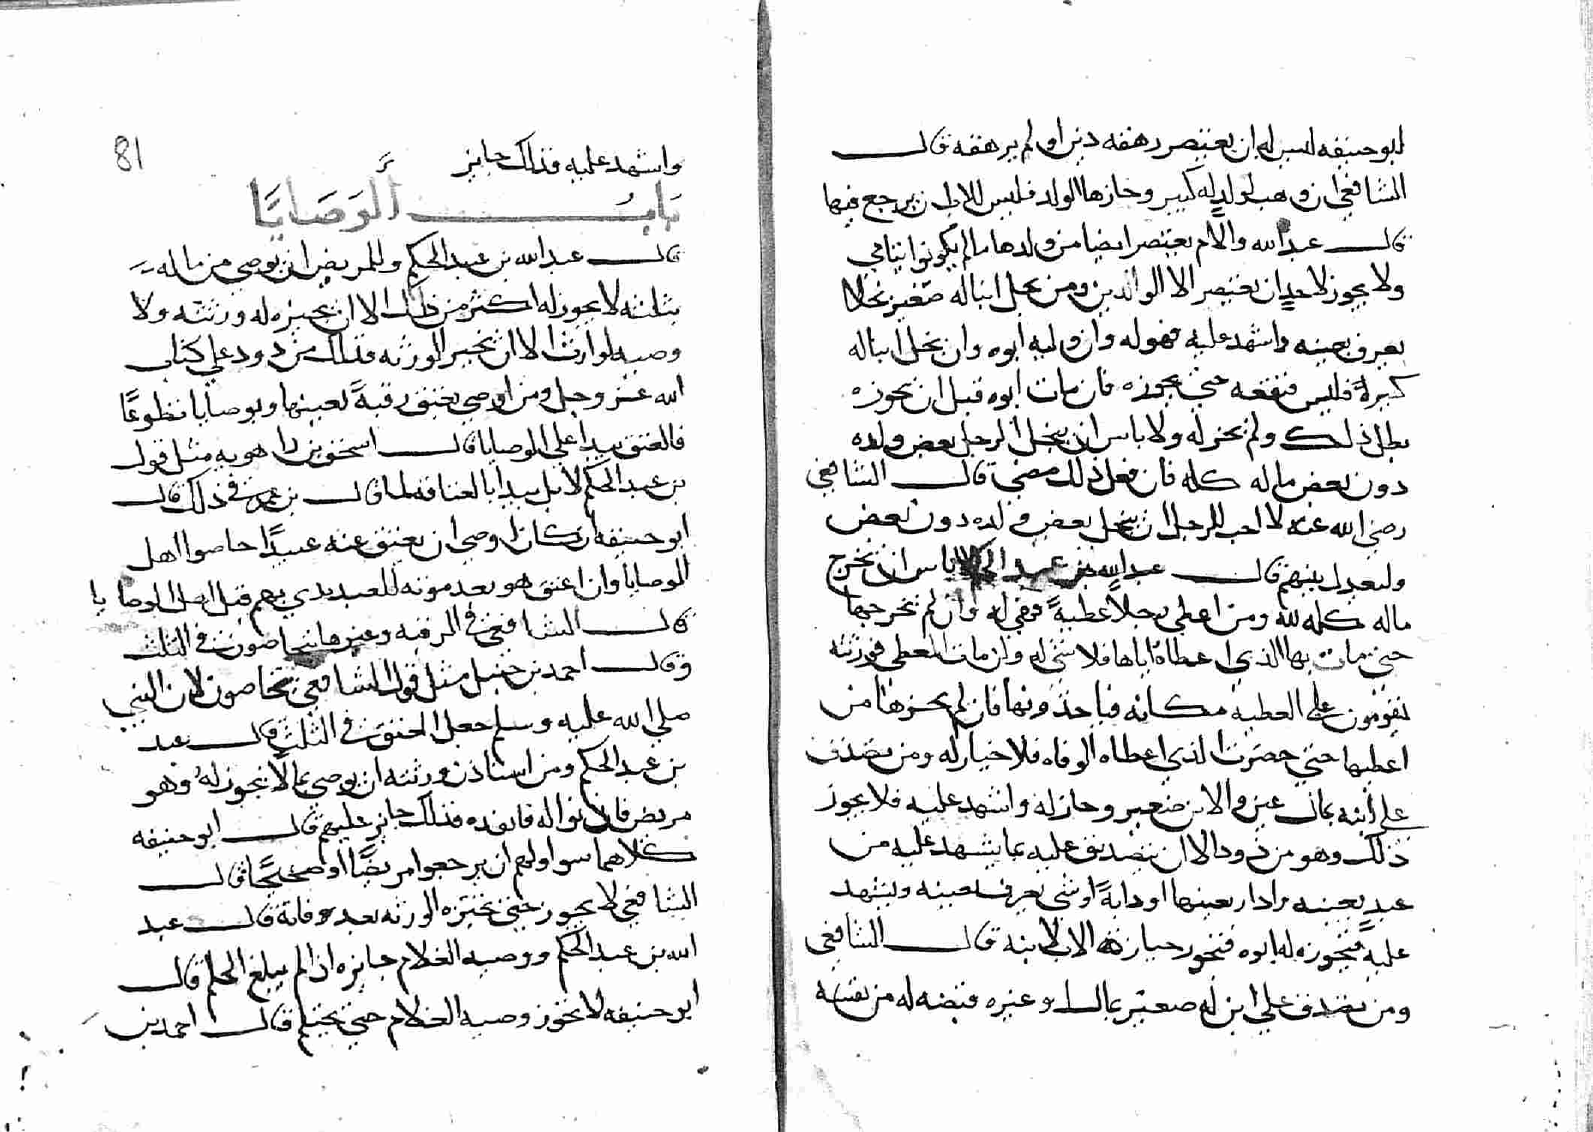 ابو حنيفه ليس له ان يعتصر رهقه دين او لم يرهقه قال
الشافعي ان وهب لولد له كبير وحازها الولد فليس للاب ان يرجع فيها
قال عبد الله والام تعتصر ايضا من ولدها ما لم يكونوا يتامى
ولا يجوز لاحد ان يعتصر الا الوالدين ومن نحل ابنا له صغير نحلا
يعرف بعينه واشهد عليه فهو له وان وليه ابوه وان نحل ابنا له
كبير فليس حتى يحوزه فان مات ابوه قبل ان يحوزه
بطل ذلك ولم يجز له ولا باس ان ينحل الرجل بعض ولده
دون بعض ماله كله فان فعل ذلك مضى قال الشافعي
رضي الله عنه لا احب للرجل ان ينحل بعض ولده دون بعض
وليعدل بينهم قال عبد الله بن عبد الحكم لا باس ان يخرج
ماله كله لله ومن اعطى رجلا عطية فهي له وان لم يخرجها
حتى مات بها الذي اعطاه اياها فلا شي له وان مات المعطى فورثته
يقومون على العطيه مكانه فان لم يحزها من
اعطيها حتى حضرت الذي اعطاه الوفاه فلا خيار له ومن تصدق
على ابنه بمال عين والابن صغير وحاز له واشهد عليه فلا يجوز
ذلك وهو مردود الا ان يتصدق عليه بما يشهد عليه من
عبد بعينه او دار بعينها او دابة او شي يعرف بعينه ويشهد
عليه فيحوزه له ابوه فتجوز حيازة الاب لابنه قال الشافعي
ومن تصدق على ابن له صغير بمال او غيره فقبضه له من نفسه
81
واشهد عليه فذلك جايز
باب الوصايا
قال عبد الله بن عبد الحكم وللمريض ان يوصي من ماله
بثلثه لا يجوز له اكثر من ذلك الا ان يجيزه له ورثته ولا
وصيه لوارث الا ان يجيز الورثه فذلك مردود على كتاب
الله عز وجل ومن اوصى بعتق رقبة بعينها وبوصايا تطوعا
فالعتق يبدا على الوصايا قال اسحق بن راهويه مثل قول
بن عبد الحكم لا بل يبدا بالعتاقه قال بن عمر في ذلك قال
ابو حنيفه ان كان اوصى ان يعتق عنه عبيدا حاصوا اهل
الوصايا وان اعتق هو بعد موته للعبد بدي بهم قبل اهل الوصايا
قال الشافعي في الرقبه وغيرها يتحاصون في الثلث
وقال احمد بن حنبل مثل قول الشافعي يتحاصون لان النبي
صلى الله عليه وسلم جعل العتق في الثلث قال عبد
بن عبد الحكم ومن استاذن ورثته ان يوصي بما لا يجوز له وهو
مريض فاذنوا له فانفذه فذلك جايز عليهم قال ابو حنيفه
كلاهما سوا ولهم ان يرجعوا مريضا او صحيحا قال
الشافعي لا يجوز حتى يجيزه الورثه بعد وفاته قال عبد
الله بن عبد الحكم ووصيه الغلام جايزه اذا لم يبلغ الحلم قال
ابو حنيفه لا تجوز وصيه الغلام حتى يحتلم قال احمد بن